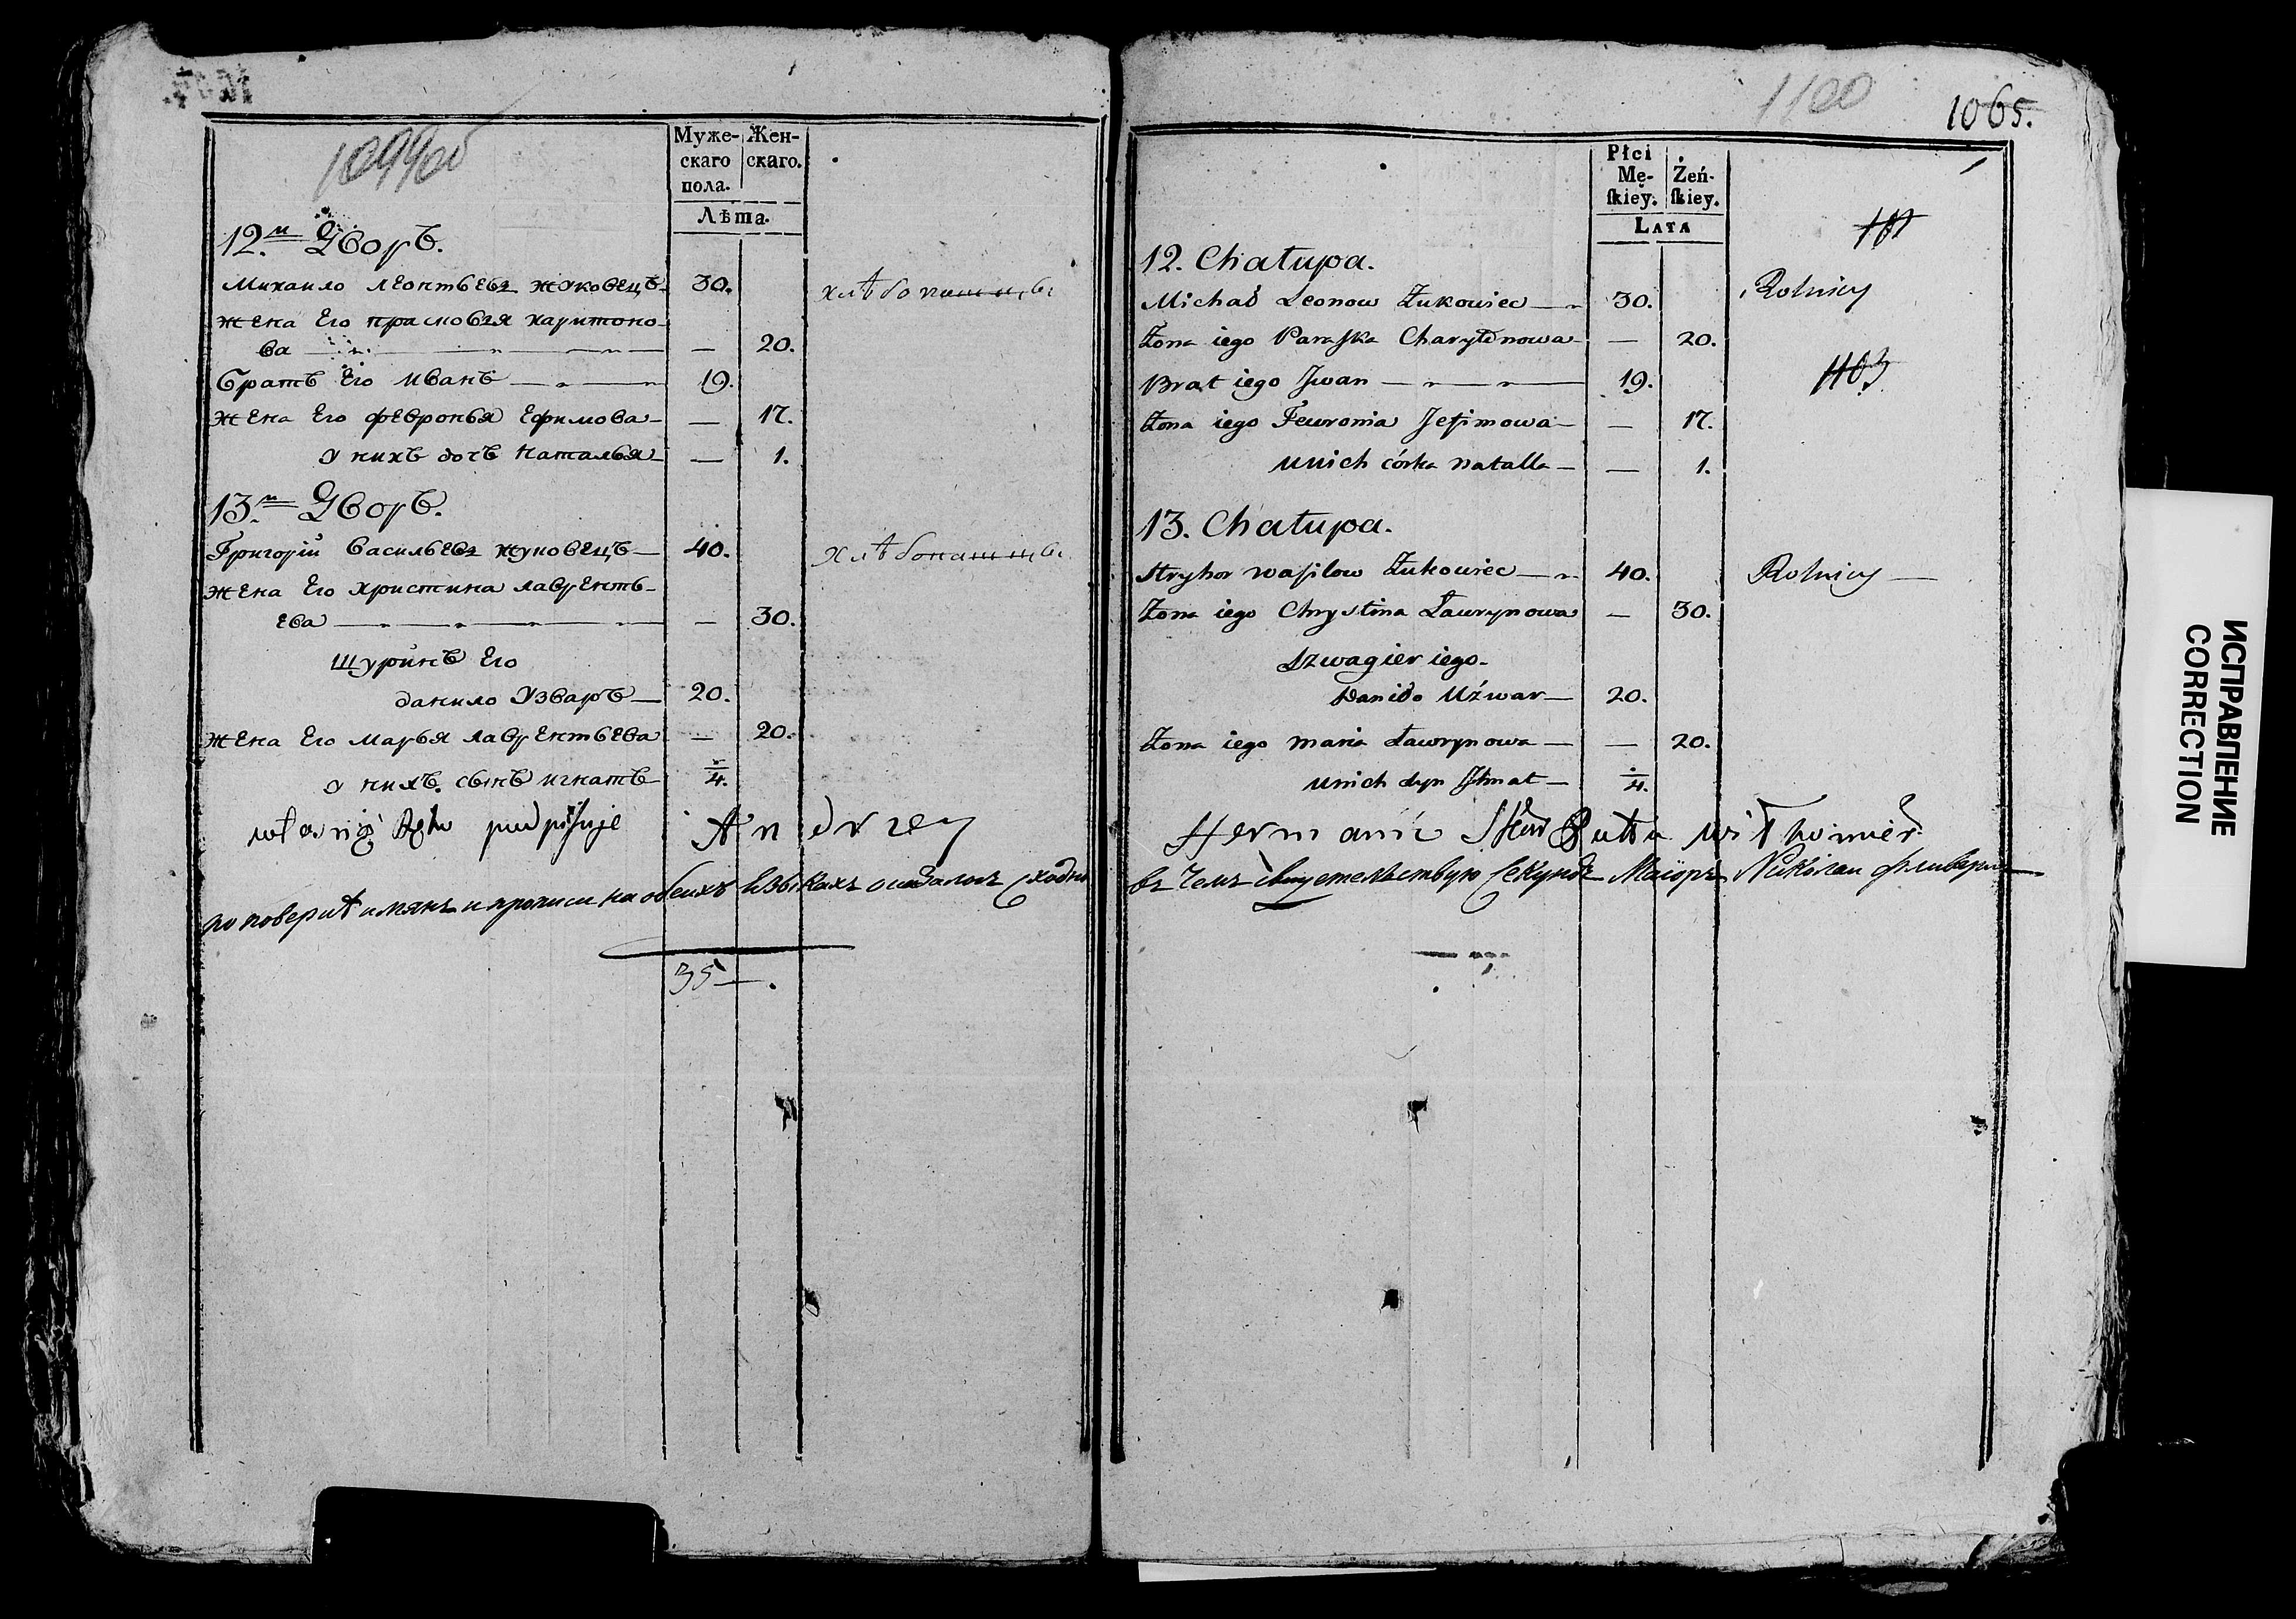 1099об
Муже-
скаго
пола.
Жен-
скаго.
Лѣта.
12.й Дворъ.
Михаило Леонтьевъ Жуковецъ 30. хлѣбопашцы
Жена Его Прасковья Харитоно-
ва — 20.
Братъ Его Иванъ 19.
Жена Его Февронья Ефимова — 17.
у нихъ дочь Наталья — 1.
13.й Дворъ.
Григорій Васильевъ Жуковецъ 40. хлѣбопашцы
Жена Его Христина Лаврентъ-
ева — 30.
Шуринъ Его
Данило Узваръ 20.
Жена Его Марья Лаврентьева — 20.
у нихъ сынъ Игнатъ 4.
własną Ręką podpisuje Andrzey
по поверкѣ имянъ и прописи на обеихъ языкахъ оказалось сходны
35
1100
1065.
Płci
Mę-
ſkiey.
Żeń-
ſkiey.
LATA
12. Chałupa.
Michał Leonow Żukowiec 30. Rolnicy
Żona iego Paraska Charytonowa — 20.
Brat iego Jwan 19.
Żona iego Fewronia Jefimowa — 17.
u nich córka Natalla — 1.
13. Chałupa.
Hryhor Wasilow Żukowiec 40. Rolnicy
Żona iego Chrystina Ławrynowa — 30.
Szwagier iego
Daniło Uźwar 20.
Żona iego Maria Ławrynowa — 20.
u nich syn Jhnat 4.
въ чемъ свидетельствую Секундъ Маіоръ Николаи
ИСПРАВЛЕНИЕ
CORRECTION